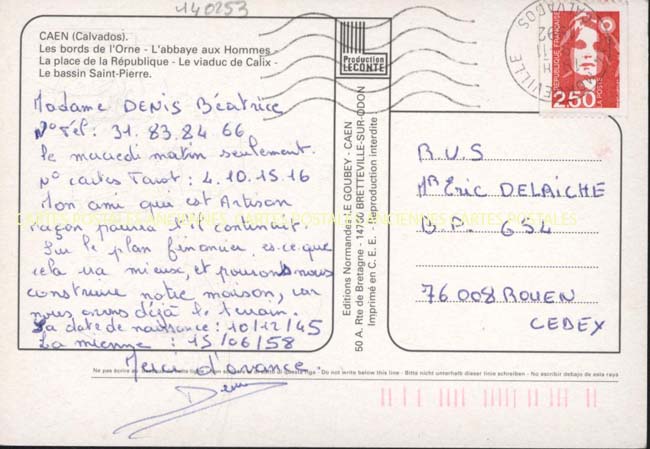 140253
CAEN (Calvados).
Les bords de l'Orne - L'abbaye aux Hommes -
La place de la République - Le viaduc de Calix -
Le bassin Saint-Pierre.
Madame DENIS Béatrice
N° Tél : 31.83.84 66
le mercredi matin seulement.
N° cartes Tarot : 4.10.15.16
Mon ami qui est Artisan
maçon pourra t'il continuer.
Sur le plan financier, es-ce que
cela va mieux, et pourons nous
construire notre maison, car
nous avons déjà le terrain.
Sa date de naissance : 10/12/45
La mienne : 15/06/58
Merci d'avance.
Production
LECONTE
Editions Normandes LE GOUBEY - CAEN
50 A, Rte de Bretagne - 14760 BRETTEVILLE-SUR-ODON
Imprimé en C.E.E. - Reproduction interdite
RÉPUBLIQUE FRANÇAISE
LA POSTE
2,50
CALVADOS
R.U.S
Mr Eric DELAICHE
B.P. 634
76008 ROUEN
CEDEX
CARTES POSTALES ANCIENNES CARTES POSTALES ANCIENNES CARTES POSTALES
Ne pas écrire au - Do not write below this line - Bitte nicht unterhalb dieser linie schreiben - No escribir debajo de esta raya